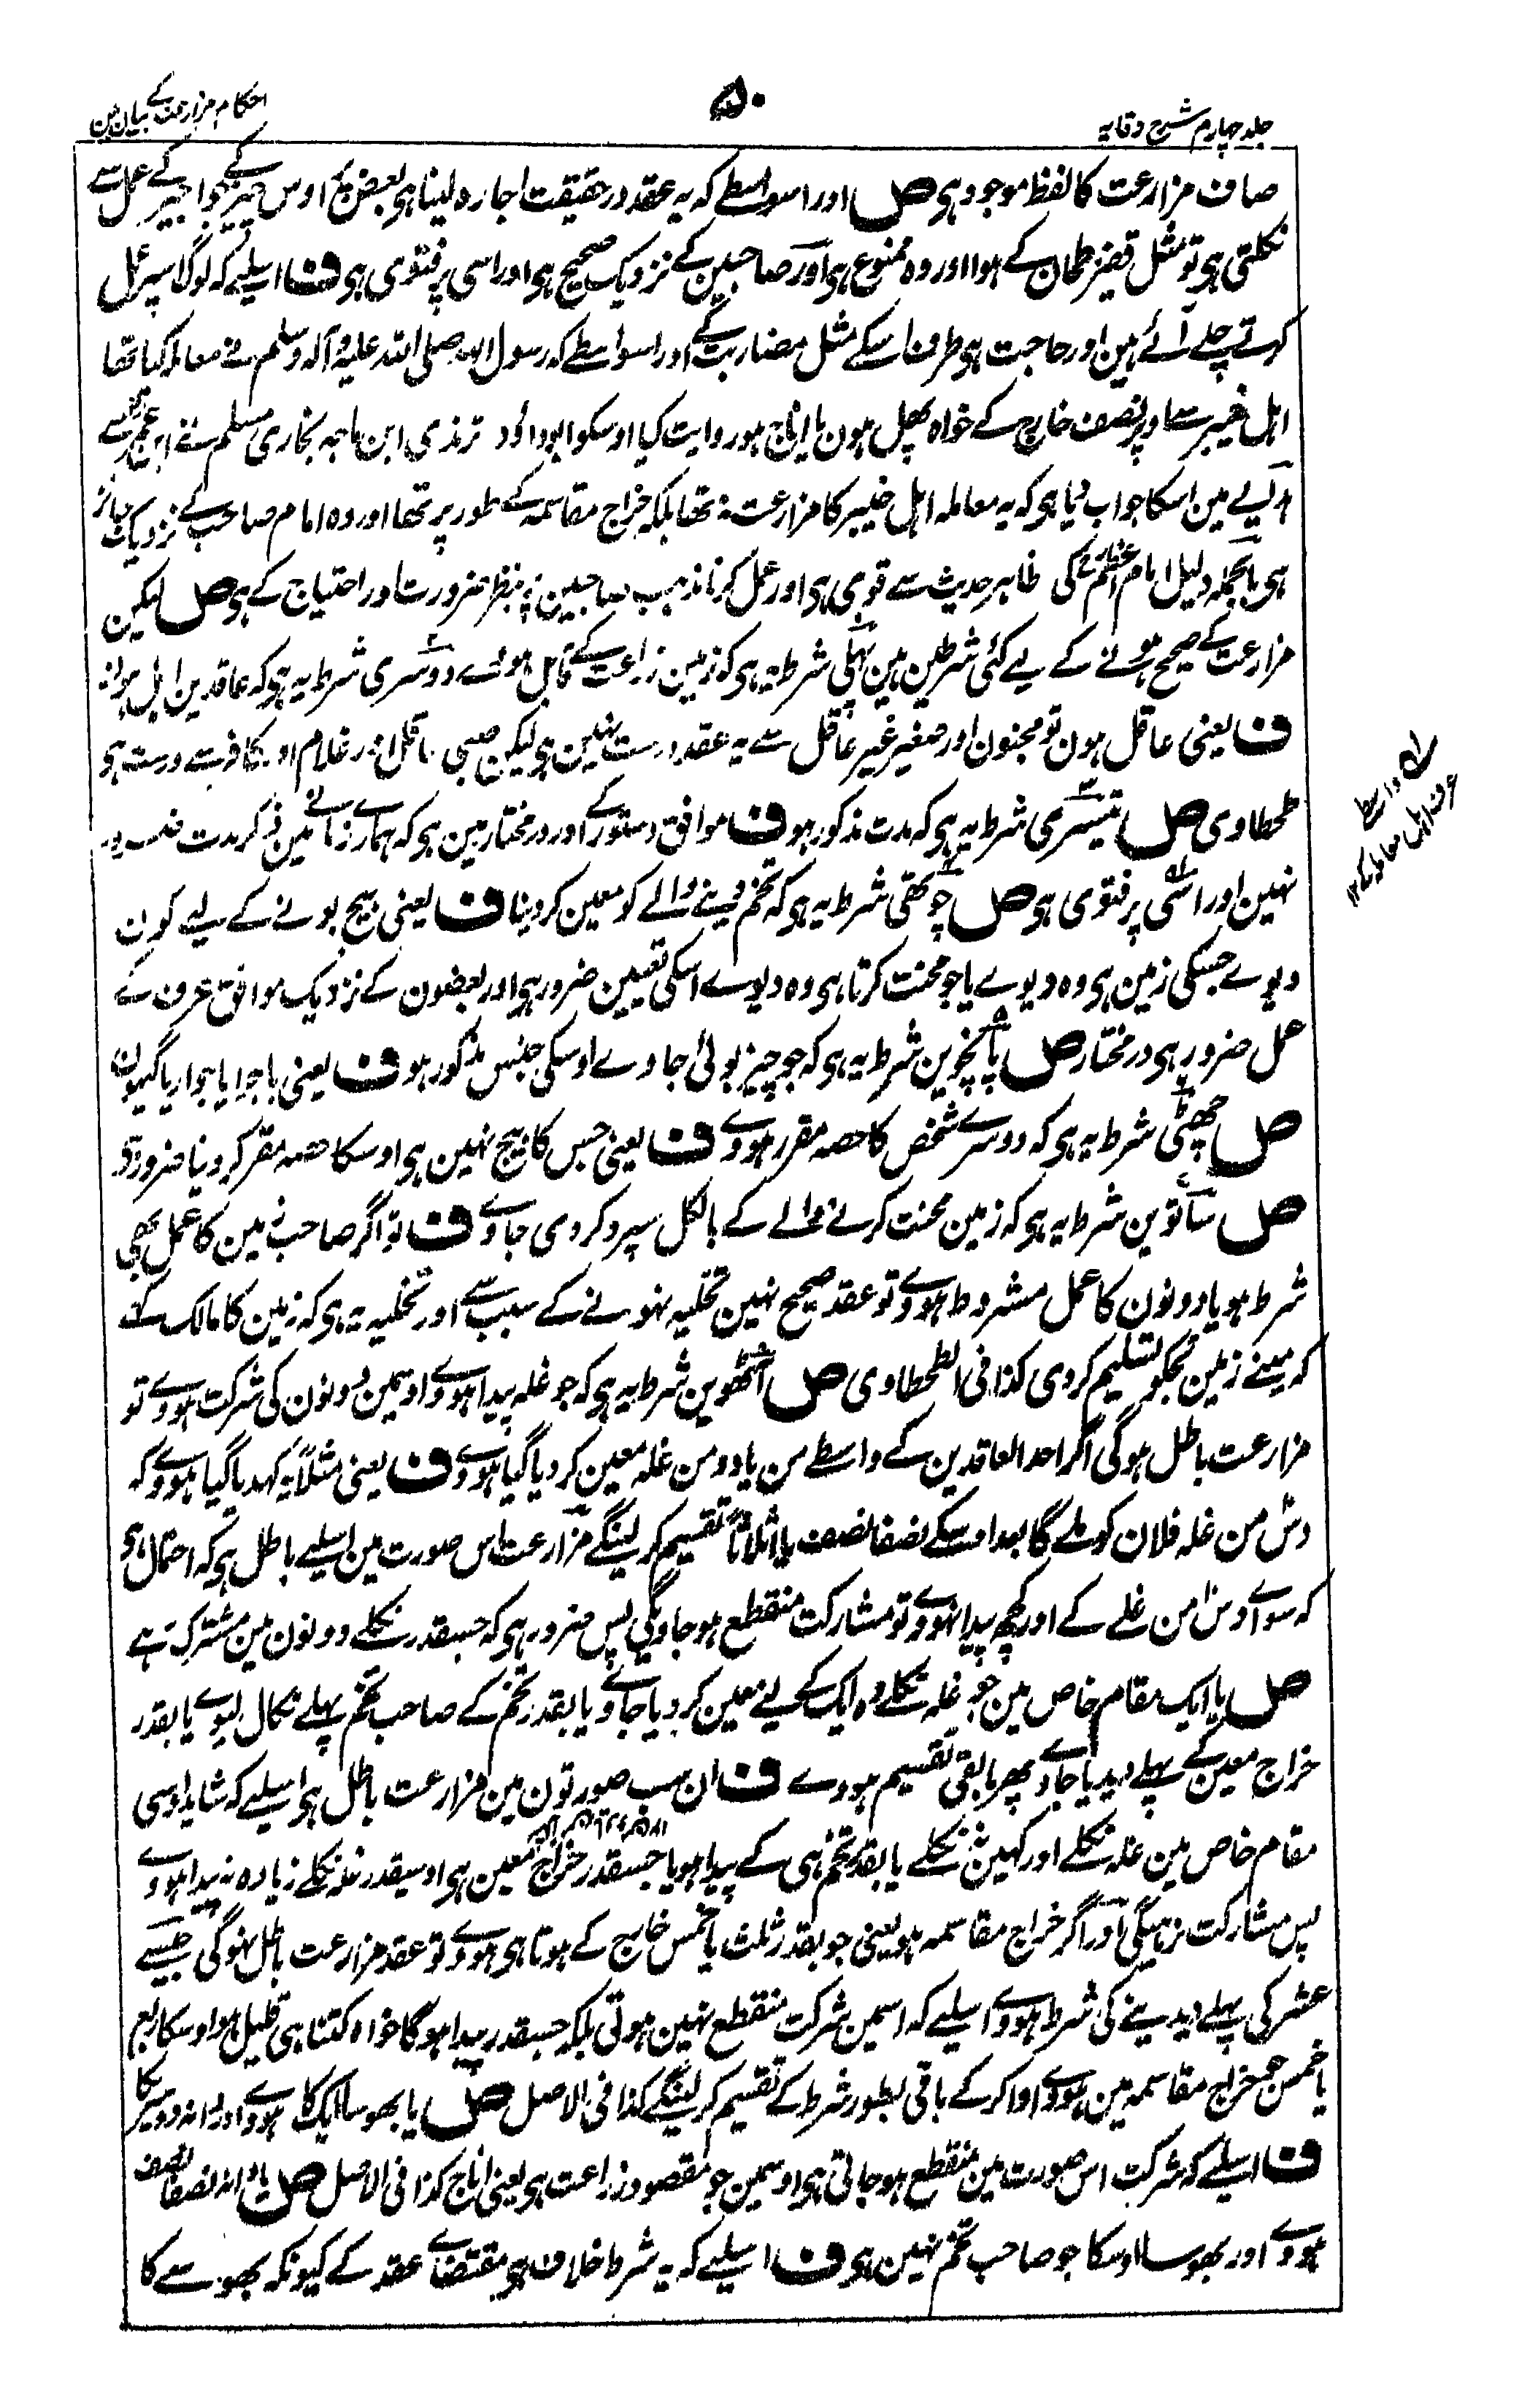 جلد چہارم شرح وقایہ
۵۰
احکام مزارعت کے بیان مین
صاف مزارعت کا لفظ موجود ہی ص اور اسواسطے کہ یہ عقد در حقیقت اجارہ لینا ہی بعض اوس چیز کے جو اجیر کے عمل سے
نکلتی ہی تو مثل قفیز طحان کے ہوا اور وہ ممنوع ہی اور صاحبین کے نزدیک صحیح ہی اور اسی پر فتوی ہی ف اسلیے کہ لوگ اسپر عمل
کرتے چلے آئے ہین اور حاجت ہی طرف اسکے مثل مضاربت کے اور اسواسطے کہ رسول اللہ صلی اللہ علیہ وآلہ وسلم نے معاملہ کیا تھا
اہل خیبر سے اوپر نصف خارج کے خواہ پھل ہون یا اناج ہو روایت کیا اوسکو ابوداؤد ترمذی ابن ماجہ بخاری مسلم نے ابن عمر سے
مین اسکا جواب دیا ہی کہ یہ معاملہ اہل خیبر کا مزارعت نہ تھا بلکہ خراج مقاسمہ کے طور پر تھا اور وہ امام صاحب کے نزدیک جائز
ہی بالجملہ دلیل امام اعظم کی ظاہر حدیث سے قوی ہی اور عمل کرنا مذہب صاحبین پر بنظر ضرورت اور احتیاج کے ہی ص لیکن
مزارعت کے صحیح ہونے کے لیے کئی شرطین ہین پہلی شرط یہ ہی کہ زمین زراعت کے قابل ہووے دوسری شرط یہ ہی کہ عاقدین اہل ہون
ف یعنی عاقل ہون تو مجنون اور صغیر غیر عاقل سے یہ عقد درست نہین ہی لیکن صبی عاقل اور غلام اور کافر سے درست ہی
طحطاوی ص تیسری شرط یہ ہی کہ مدت مذکور ہو ف موافق دستور کے اور درمختار مین ہی کہ ہمارے زمانے مین ذکر مدت ضرور
نہین اور اسی پر فتوی ہی ص چوتھی شرط یہ ہی کہ تخم دینے والے کو معین کر دینا ف یعنی بیج بونے کے لیے کون
دیوے جسکی زمین ہی وہ دیوے یا جو محنت کرتا ہی وہ دیوے اسکی تعیین ضرور ہی اور بعضون کے نزدیک موافق عرف کے
عمل ضرور ہی درمختار ص پانچوین شرط یہ ہی کہ جو چیز بوئی جاوے اوسکی جنس مذکور ہو ف یعنی باجرا یا جوار یا گیہون
ص چھٹی شرط یہ ہی کہ دوسرے شخص کا حصہ مقرر ہووے ف یعنی جس کا بیج نہین ہی اوسکا حصہ مقرر کر دینا ضرور ہی
ص ساتوین شرط یہ ہی کہ زمین محنت کرنے والے کے بالکل سپرد کر دی جاوے ف تو اگر صاحب زمین کا عمل بھی
شرط ہو یا دونون کا عمل مشروط ہووے تو عقد صحیح نہین تخلیہ نہونے کے سبب سے اور تخلیہ یہ ہی کہ زمین کا مالک کہے
کہ مینے زمین تجکو تسلیم کر دی کذا فی الطحطاوی ص آٹھوین شرط یہ ہی کہ جو غلہ پیدا ہووے اوسمین دونون کی شرکت ہووے تو
مزارعت باطل ہوگی اگر احد العاقدین کے واسطے من یا دو من غلہ معین کر دیا گیا ہووے ف یعنی مثلاً یہ کہدیا گیا ہووے کہ
دس من غلہ فلان کو ملے گا بعد اوسکے نصفا نصف یا اثلاثاً تقسیم کر لینگے مزارعت اس صورت مین اسلیے باطل ہی کہ احتمال ہی
کہ سوا اوس دس من غلے کے اور کچھ پیدا نہووے تو مشارکت منقطع ہو جاویگی پس ضرور ہی کہ جسقدر نکلے دونون مین مشترک رہے
ص یا ایک مقام خاص مین جو غلہ نکلے وہ ایک کے لیے معین کر دیا جاوے یا بقدر تخم کے صاحب تخم پہلے نکال لیوے یا بقدر
خراج معین کے پہلے دیدیا جاوے پھر باقی تقسیم ہووے ف ان سب صورتون مین مزارعت باطل ہی اسلیے کہ شاید اوسی
مقام خاص مین غلہ نکلے اور کہین نہ نکلے یا بقدر تخم ہی کے پیدا ہو یا جسقدر خراج معین ہی اوسیقدر غلہ نکلے زیادہ نہ پیدا ہووے
پس مشارکت نرہیگی اور اگر خراج مقاسمہ ہو یعنی جو بقدر ثلث یا خمس خارج کے ہوتا ہی ہووے تو عقد مزارعت باطل نہوگی جیسے
عشر کی پہلے دیدینے کی شرط ہووے اسلیے کہ اسمین شرکت منقطع نہین ہوتی بلکہ جسقدر پیدا ہوگا خواہ کتنا ہی قلیل ہو اوسکا ربع
یا خمس جو خراج مقاسمہ مین ہووے ادا کر کے باقی بطور شرط کے تقسیم کر لینگے کذا فی الاصل ص یا بھوسا ایک کا ہووے اور دانہ دوسریکا
ف اسلیے کہ شرکت اس صورت مین منقطع ہو جاتی ہی اوسمین جو مقصود زراعت ہی یعنی اناج کذا فی الاصل ص یا دانہ نصفا نصف
ہووے اور بھوسا اوسکا جو صاحب تخم نہین ہی ف اسلیے کہ یہ شرط خلاف ہی مقتضاے عقد کے کیونکہ بھوسے کا
واسطے
عرف اہل معاملہ کے ۱۲